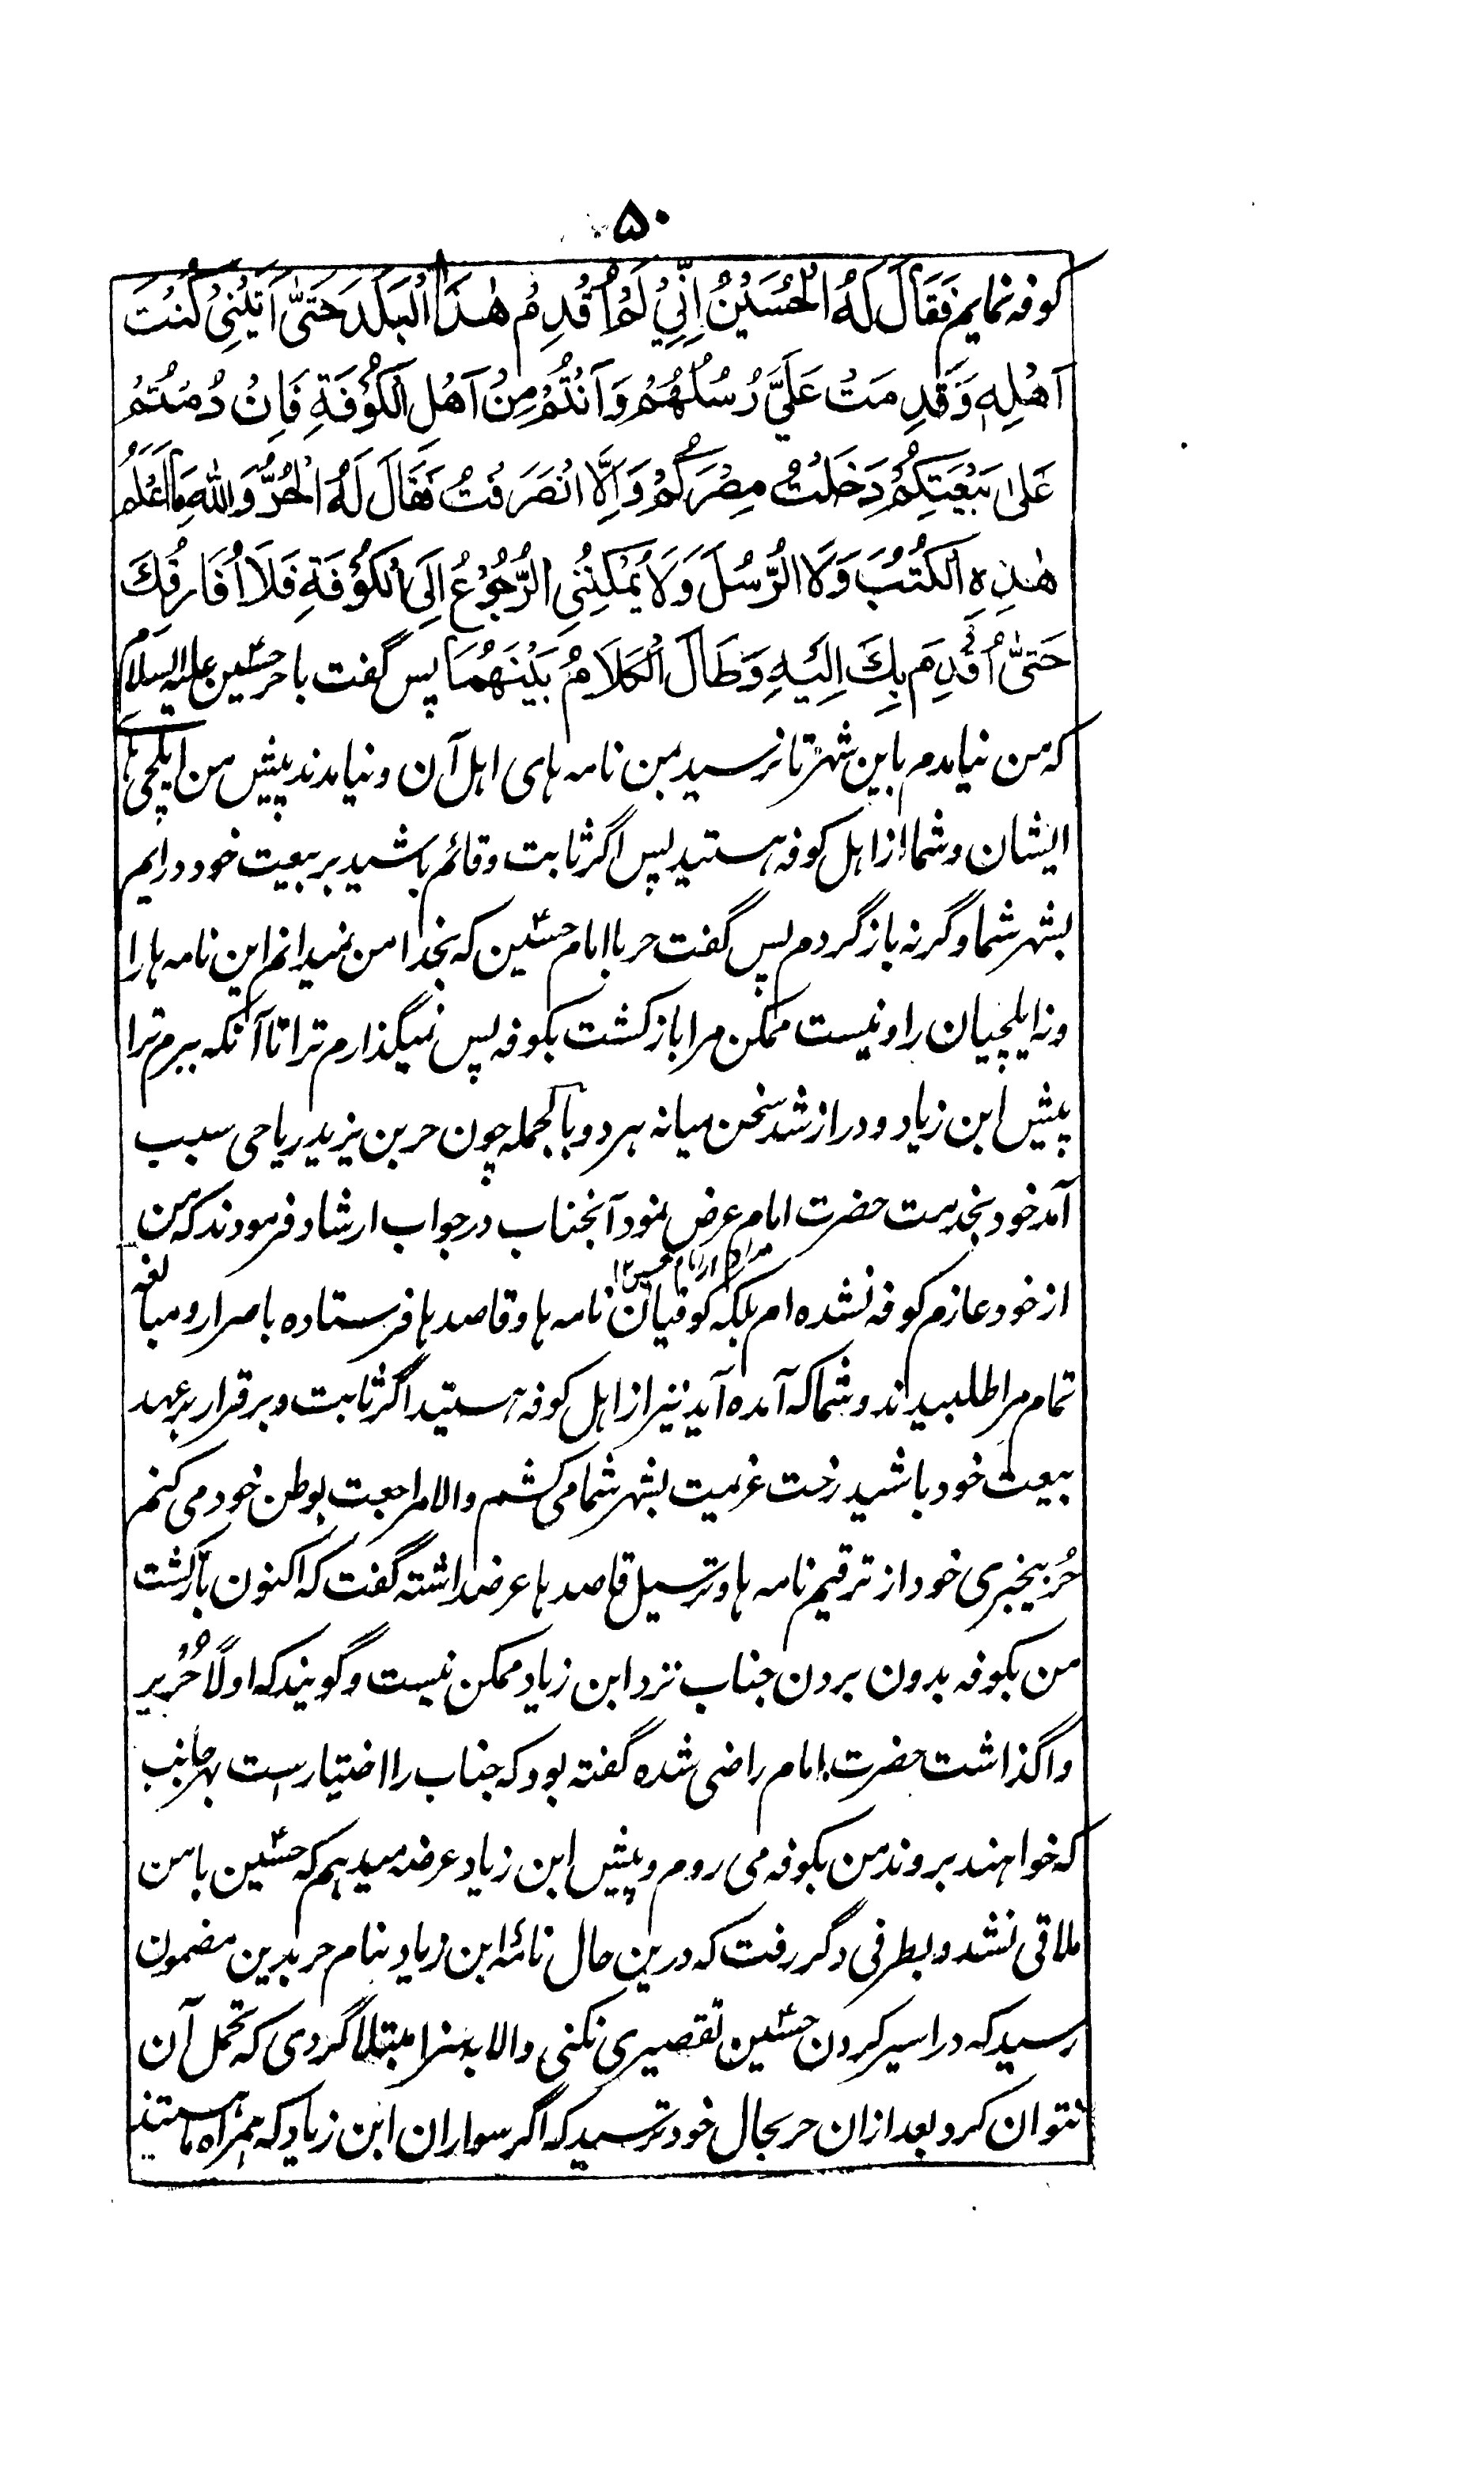 ۵۰
کوفه نمایم فَقَالَ لَهُ الْحُسَیْنُ اِنِّیْ لَمْ اُقْدِمْ هٰذَا الْبَلَدَ حَتّٰی اَتَیْنِیْ کُتُبُ
اَهْلِهٖ وَقَدِمَتْ عَلَیَّ رُسُلُهُمْ وَاَنْتُمْ مِنْ اَهْلِ الْکُوْفَةِ فَاِنْ دُمْتُمْ
عَلٰی بَیْعَتِکُمْ دَخَلْتُ مِصْرَکُمْ وَاِلَّا انْصَرَفْتُ فَقَالَ لَهُ الْحُرُّ وَاللهِ مَا اَعْلَمُ
هٰذِهِ الْکُتُبَ وَلَا الرُّسُلَ وَلَا یُمْکِنُنِی الرُّجُوْعُ اِلَی الْکُوْفَةِ فَلَا اُفَارِقُكَ
حَتّٰی اُقْدِمَ بِكَ اِلَیْهِ وَطَالَ الْکَلَامُ بَیْنَهُمَا پس گفت با حر حسین علیه السلام
که من نیامدم باین شهر تا نرسید بمن نامه های اهل آن و نیامدند پیش من ایلچی ها
ایشان و شما از اهل کوفه هستید پس اگر ثابت و قائم باشید بر بیعت خود درایم
بشهر شما وگرنه بازگردم پس گفت حر با امام حسین که بخدا من نمیدانم این نامه ها را
ونه ایلچیان را و نیست ممکن مرا بازکشت بکوفه پس نمیگذارم ترا تا آنکه ببرم ترا
پیش ابن زیاد و دراز شد سخن میانه هر دو بالجمله چون حر بن یزید ریاحی سبب
آمد خود بخدمت حضرت امام عرض نمود آنجناب در جواب ارشاد فرمودند که من
از خود عازم کوفه نشده ام بلکه کوفیان نامه ها و قاصد ها فرستاده باصرار و مبالغه
تمام مرا طلبیدند و شما که آمده آید نیز از اهل کوفه هستید اگر ثابت و برقرار بر عهد
بیعت خود باشید رخت عزیمت بشهر شما می کشم والا مراجعت بوطن خود می کنم
حُر بیخبری خود از ترقیم نامه ها و ترسیل قاصد ها عرضداشته گفت که اکنون بازکشت
من بکوفه بدون بردن جناب نزد ابن زیاد ممکن نیست و گویند که اولًا حُر بر
واگذاشت حضرت امام راضی شده گفته بود که جناب را اختیارست بهر جانب
که خواهند بروند من بکوفه می روم و پیش ابن زیاد عرضه میدهم که حسین با من
ملاقی نشد و بطرفی دگر رفت که درین حال نامۀ ابن زیاد بنام حر بدین مضمون
رسید که در اسیر کردن حسین تقصیری نکنی والا بسزا مبتلا گردی که تحمل آن
نتوان کرد بعد ازان حر بحال خود ترسید که اگر سواران ابن زیاد که همراه ما هستند